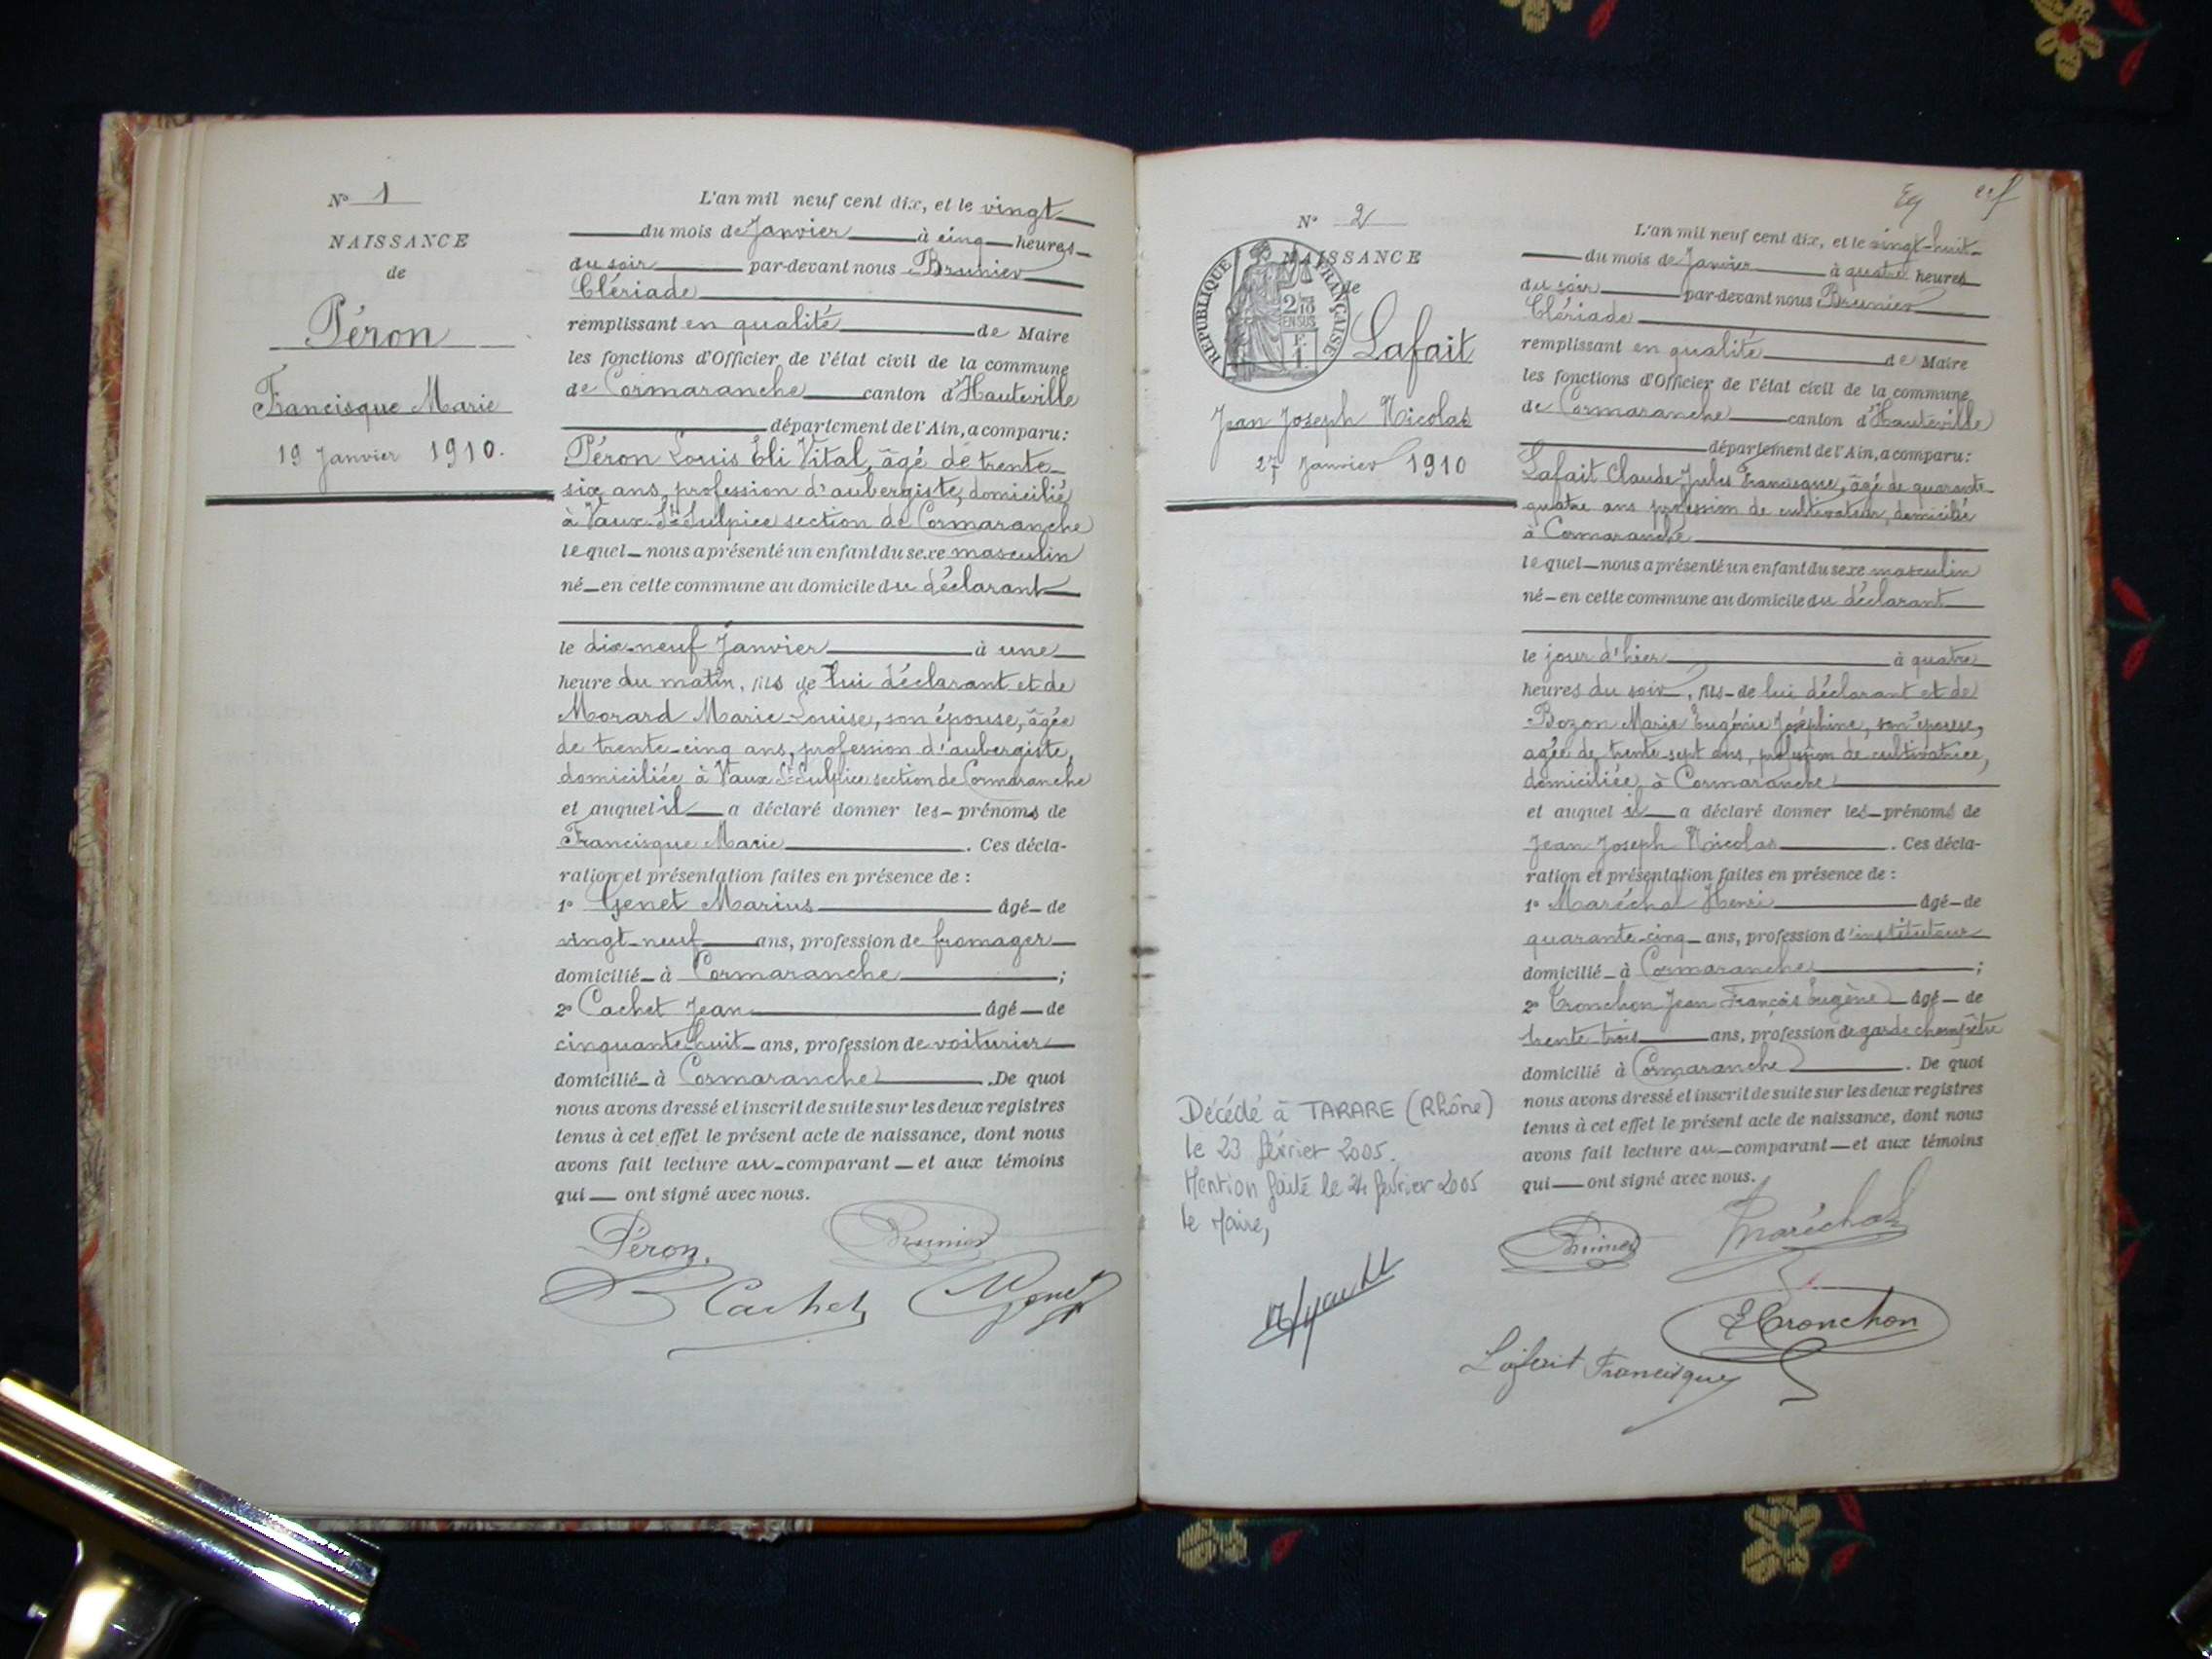 N° 1
NAISSANCE
de
Péron
Francisque Marie
19 Janvier 1910.
L'an mil neuf cent dix, et le vingt
du mois de Janvier à cinq heures
du soir par-devant nous Brunier
Clériade
remplissant en qualité de Maire
les fonctions d'Officier de l'état civil de la commune
de Cormaranche canton d'Hauteville
département de l'Ain, a comparu:
Péron Louis Eli Vital, âgé de trente-
six ans, profession d'aubergiste, domicilié
à Vaux-St-Sulpice section de Cormaranche
lequel nous a présenté un enfant du sexe masculin
né en cette commune au domicile du déclarant
le dix-neuf Janvier à une
heure du matin, fils de lui déclarant et de
Morard Marie-Louise, son épouse, âgée
de trente-cinq ans, profession d'aubergiste,
domiciliée à Vaux St-Sulpice section de Cormaranche
et auquel il a déclaré donner les prénoms de
Francisque Marie. Ces décla-
ration et présentation faites en présence de :
1° Genet Marius âgé de
vingt-neuf ans, profession de fromager
domicilié à Cormaranche ;
2° Cachet Jean âgé de
cinquante-huit ans, profession de voiturier
domicilié à Cormaranche. De quoi
nous avons dressé et inscrit de suite sur les deux registres
tenus à cet effet le présent acte de naissance, dont nous
avons fait lecture au comparant et aux témoins
qui ont signé avec nous.
Péron. Brunier
Cachet Genet
N° 2
NAISSANCE
de
REPUBLIQUE FRANÇAISE
2/10
EN SUS
F.
1.
Lafait
Jean Joseph Nicolas
27 Janvier 1910
L'an mil neuf cent dix, et le vingt-huit
du mois de Janvier à quatre heures
du soir par-devant nous Brunier
Clériade
remplissant en qualité de Maire
les fonctions d'Officier de l'état civil de la commune
de Cormaranche canton d'Hauteville
département de l'Ain, a comparu:
Lafait Claude Jules Francisque, âgé de quarante-
quatre ans profession de cultivateur, domicilié
à Cormaranche
lequel nous a présenté un enfant du sexe masculin
né en cette commune au domicile du déclarant
le jour d'hier à quatre
heures du soir, fils de lui déclarant et de
Bozon Marie Eugénie Joséphine, son épouse,
agée de trente-sept ans, profession de cultivatrice,
domiciliée à Cormaranche
et auquel il a déclaré donner les prénoms de
Jean Joseph Nicolas. Ces décla-
ration et présentation faites en présence de :
1° Maréchal Henri âgé de
quarante-cinq ans, profession d'instituteur
domicilié à Cormaranche ;
2° Tronchon Jean François Eugène âgé de
trente trois ans, profession de garde champêtre
domicilié à Cormaranche. De quoi
nous avons dressé et inscrit de suite sur les deux registres
tenus à cet effet le présent acte de naissance, dont nous
avons fait lecture au comparant et aux témoins
qui ont signé avec nous.
Décédé à TARARE (Rhône)
le 23 février 2005.
Mention faite le 24 février 2005
le Maire,
Brunier Maréchal
E Tronchon
Lafait Francisque